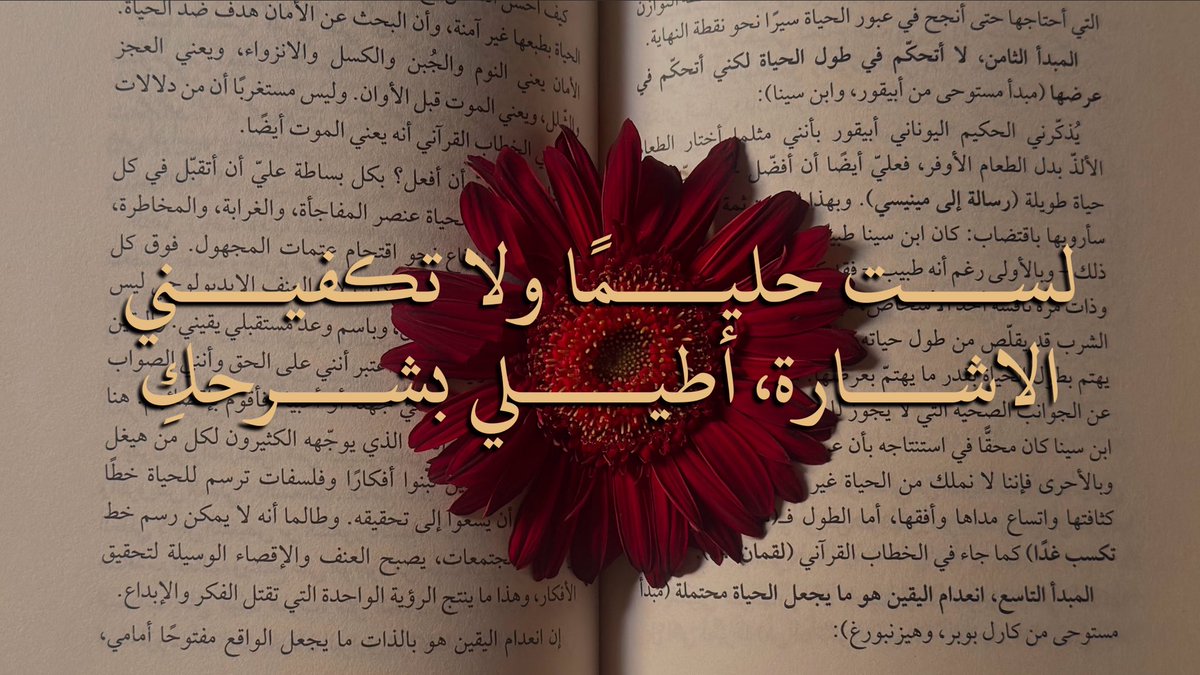 لست حليمًا ولا تكفيني
الاشارة، أطيلي بشرحكِ
التي أحتاجها حتى أنجح في عبور الحياة سيرًا نحو نقطة النهاية.
المبدأ الثامن، لا أتحكّم في طول الحياة لكني أتحكّم في
عرضها (مبدأ مستوحى من أبيقور، وابن سينا):
يُذكّرني الحكيم اليوناني أبيقور بأنني مثلما أختار الطعام
الألذّ بدل الطعام الأوفر، فعليّ أيضًا أن أفضّل
حياة طويلة (رسالة إلى مينيسي). وبهذا
سأرويها باقتضاب: كان ابن سينا
ذلك – وبالأولى رغم أنه طبيب
وذات مرة
الشرب قد يقلّص من طول حياته
يهتم
عن الجوانب الصحية التي لا يجوز
ابن سينا كان محقًّا في استنتاجه بأن
وبالأحرى فإننا لا نملك من الحياة غير
كثافتها واتساع مداها وأفقها، أما الطول
تكسب غدًا) كما جاء في الخطاب القرآني (لقمان
المبدأ التاسع، انعدام اليقين هو ما يجعل الحياة محتملة (مبدأ
مستوحى من كارل بوبر، وهيزنبورغ):
الحياة بطبعها غير آمنة، وأن البحث عن الأمان هدف ضد الحياة.
الأمان يعني النوم والجُبن والكسل والانزواء، ويعني العجز
والشّلل، ويعني الموت قبل الأوان. وليس مستغربًا أن من دلالات
الخطاب القرآني أنه يعني الموت أيضًا.
أن أفعل؟ بكل بساطة عليّ أن أتقبّل في كل
حياة عنصر المفاجأة، والغرابة، والمخاطرة،
نحو اقتحام عتمات المجهول. فوق كل
ليس
وباسم وعد مستقبلي يقيني.
أعتبر أنني على الحق وأنني الصواب
هنا
الذي يوجّهه الكثيرون لكل من هيغل
تبنوا أفكارًا وفلسفات ترسم للحياة خطًا
أن يسعوا إلى تحقيقه. وطالما أنه لا يمكن رسم خط
المجتمعات، يصبح العنف والإقصاء الوسيلة لتحقيق
الأفكار، وهذا ما ينتج الرؤية الواحدة التي تقتل الفكر والإبداع.
إن انعدام اليقين هو بالذات ما يجعل الواقع مفتوحًا أمامي،